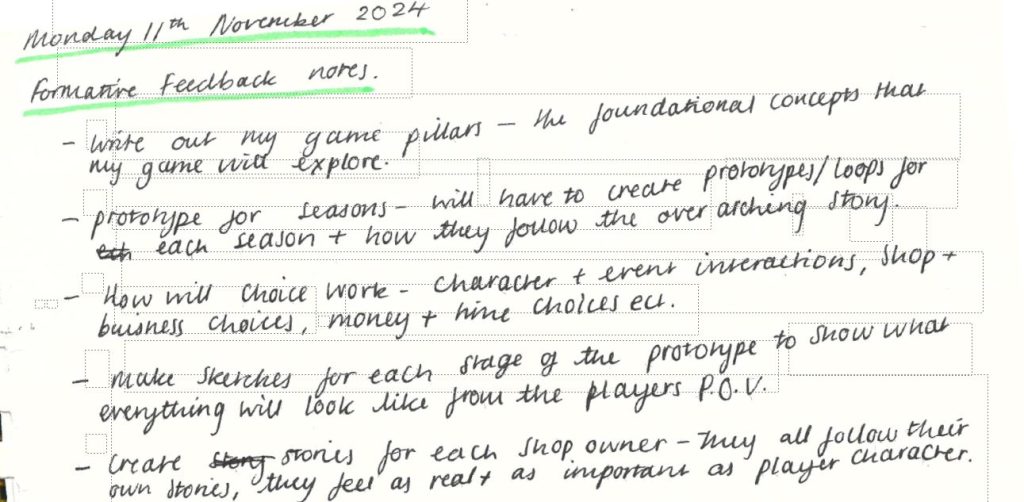 Monday 11th November 2024
Formative Feedback notes.
- Write out my game pillars - the foundational concepts that
my game will explore.
- prototype for seasons - will have to create prototypes/loops for
each season + how they follow the over arching story.
- How will choice work - character + event interactions, shop +
buisness choices, money + time choices ect.
- make sketches for each stage of the prototype to show what
everything will look like from the players P.O.V.
- Create story stories for each shop owner - They all follow their
own stories, they feel as real + as important as player character.